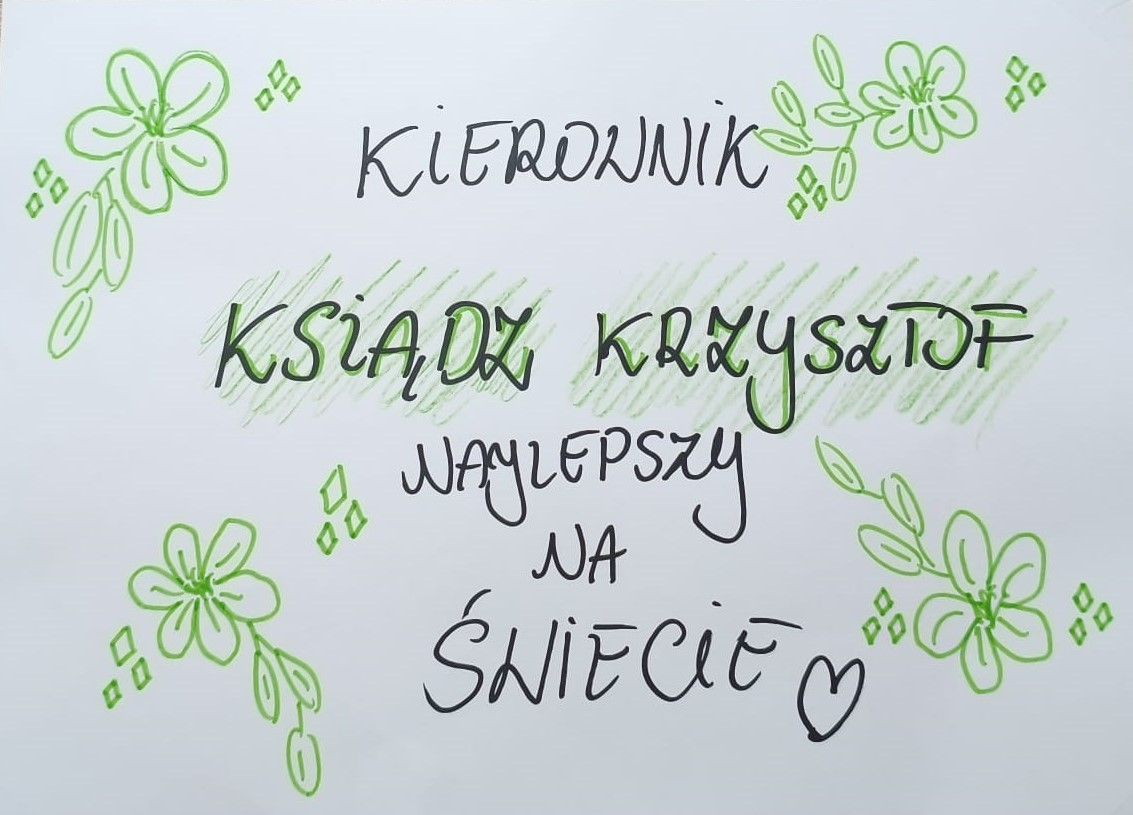 KIEROWNIK
KSIĄDZ KRZYSZTOF
NAJLEPSZY
NA
ŚWIECIE